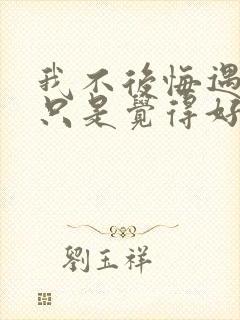 我不後悔遇
只是覺得好
劉玉祥